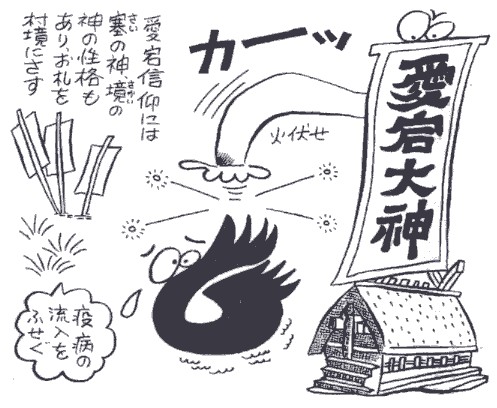 愛宕信仰には
塞の神、境の
神の性格も
ありお札を
村境にさす
さい
さかい
カーッ
火伏せ
愛宕大神
疫病の
流入を
ふせぐ